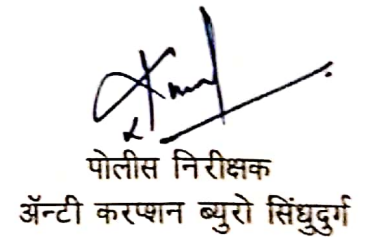 पोलीस निरीक्षक
ॲन्टी करप्शन ब्युरो सिंधुदुर्ग